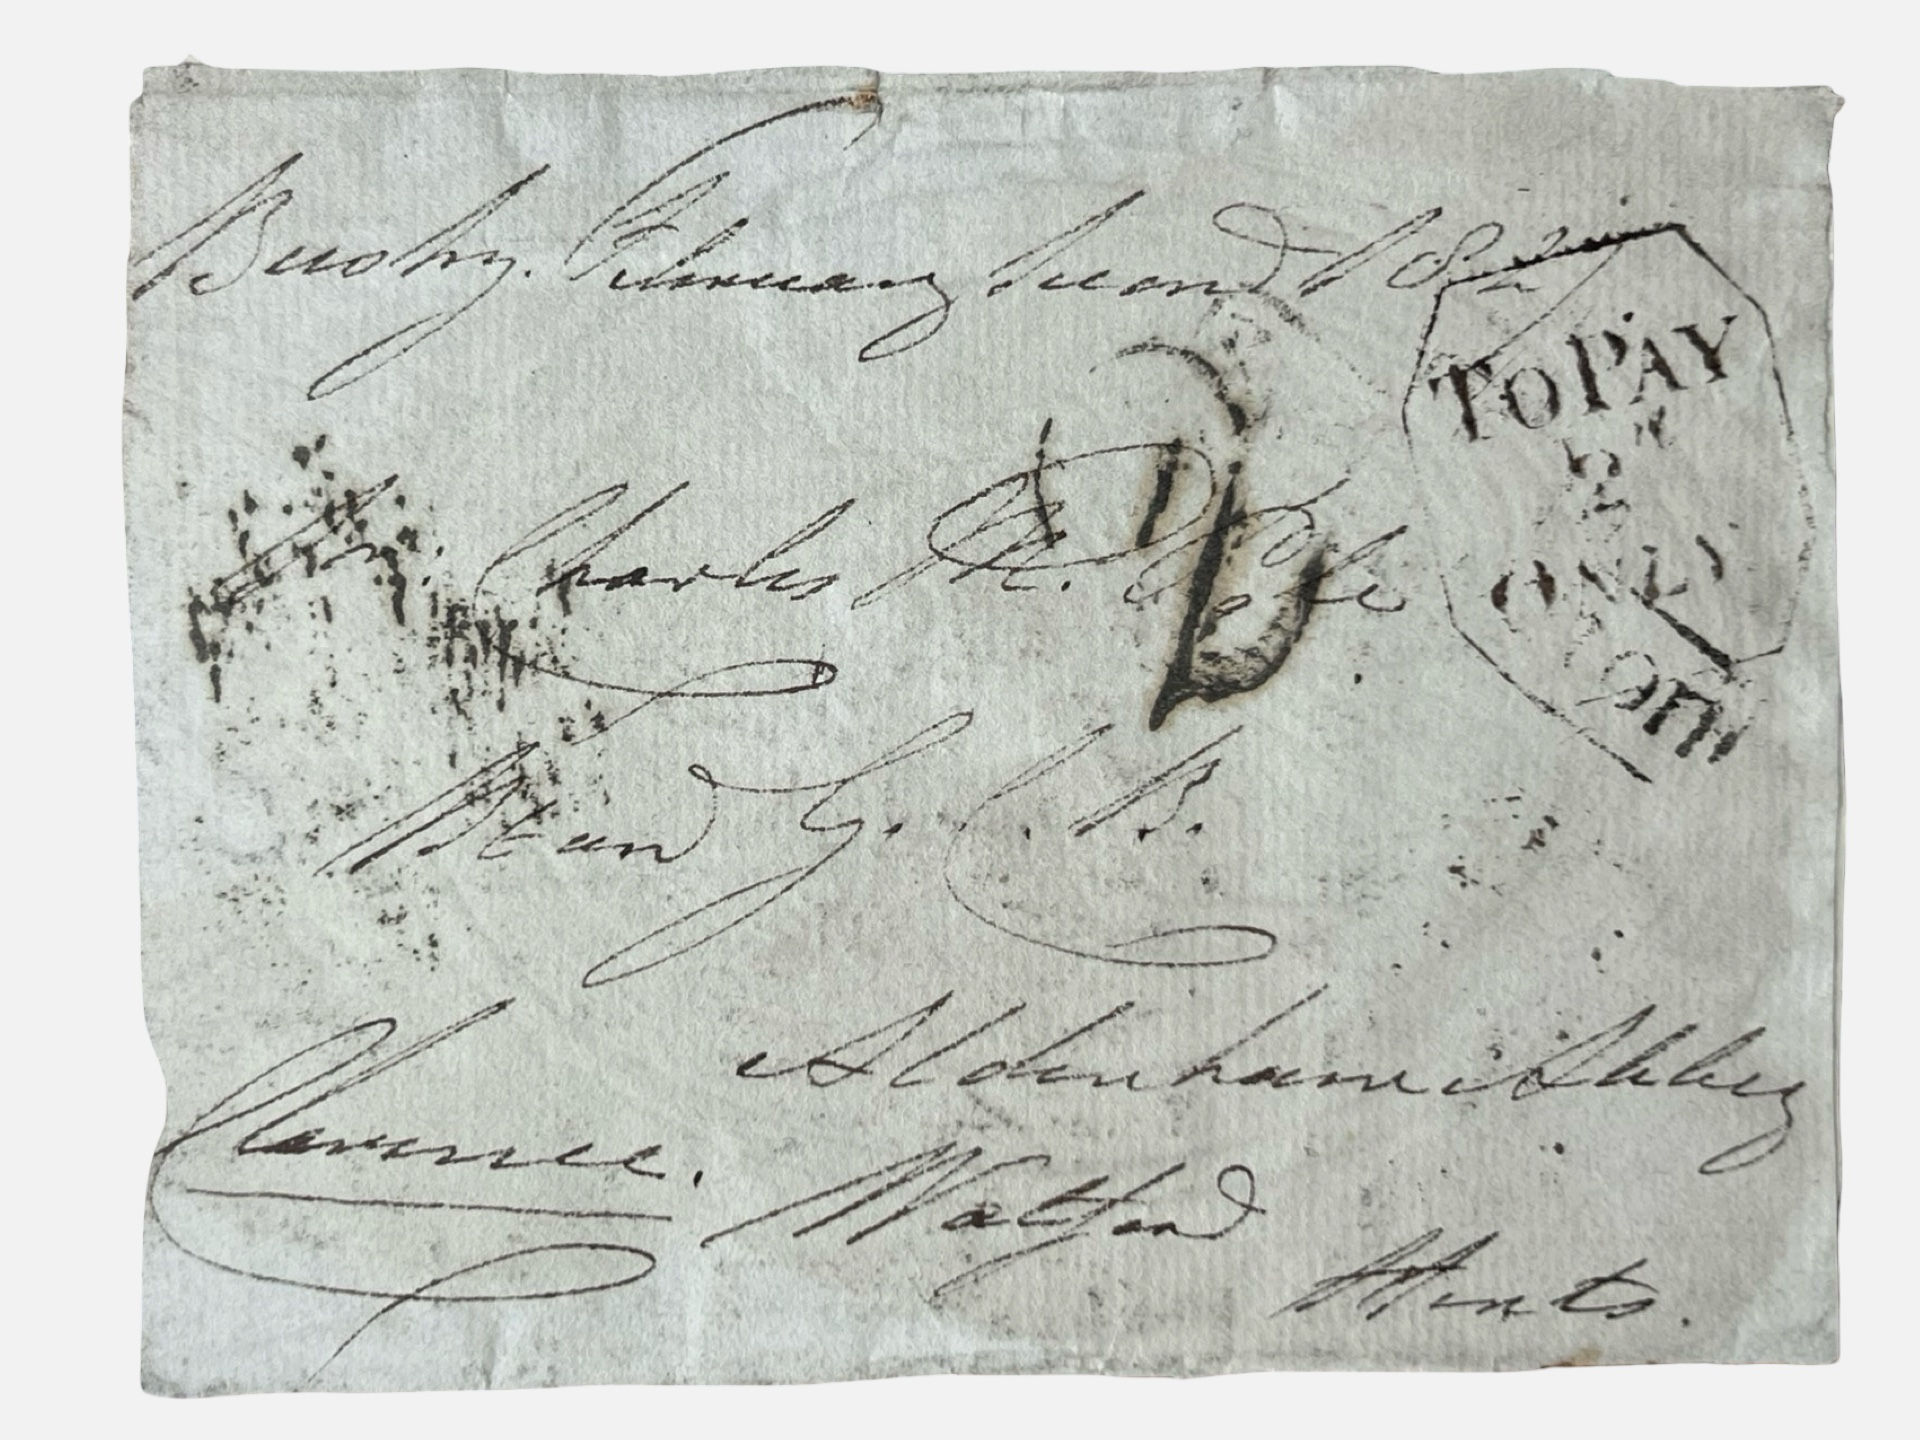 Bushy February second 182
TO PAY
2
ONLY
Sir. Charles M. Pole
Barnd G. C. B.
Aldenham Abbey
Clarence.
Watford
Herts.